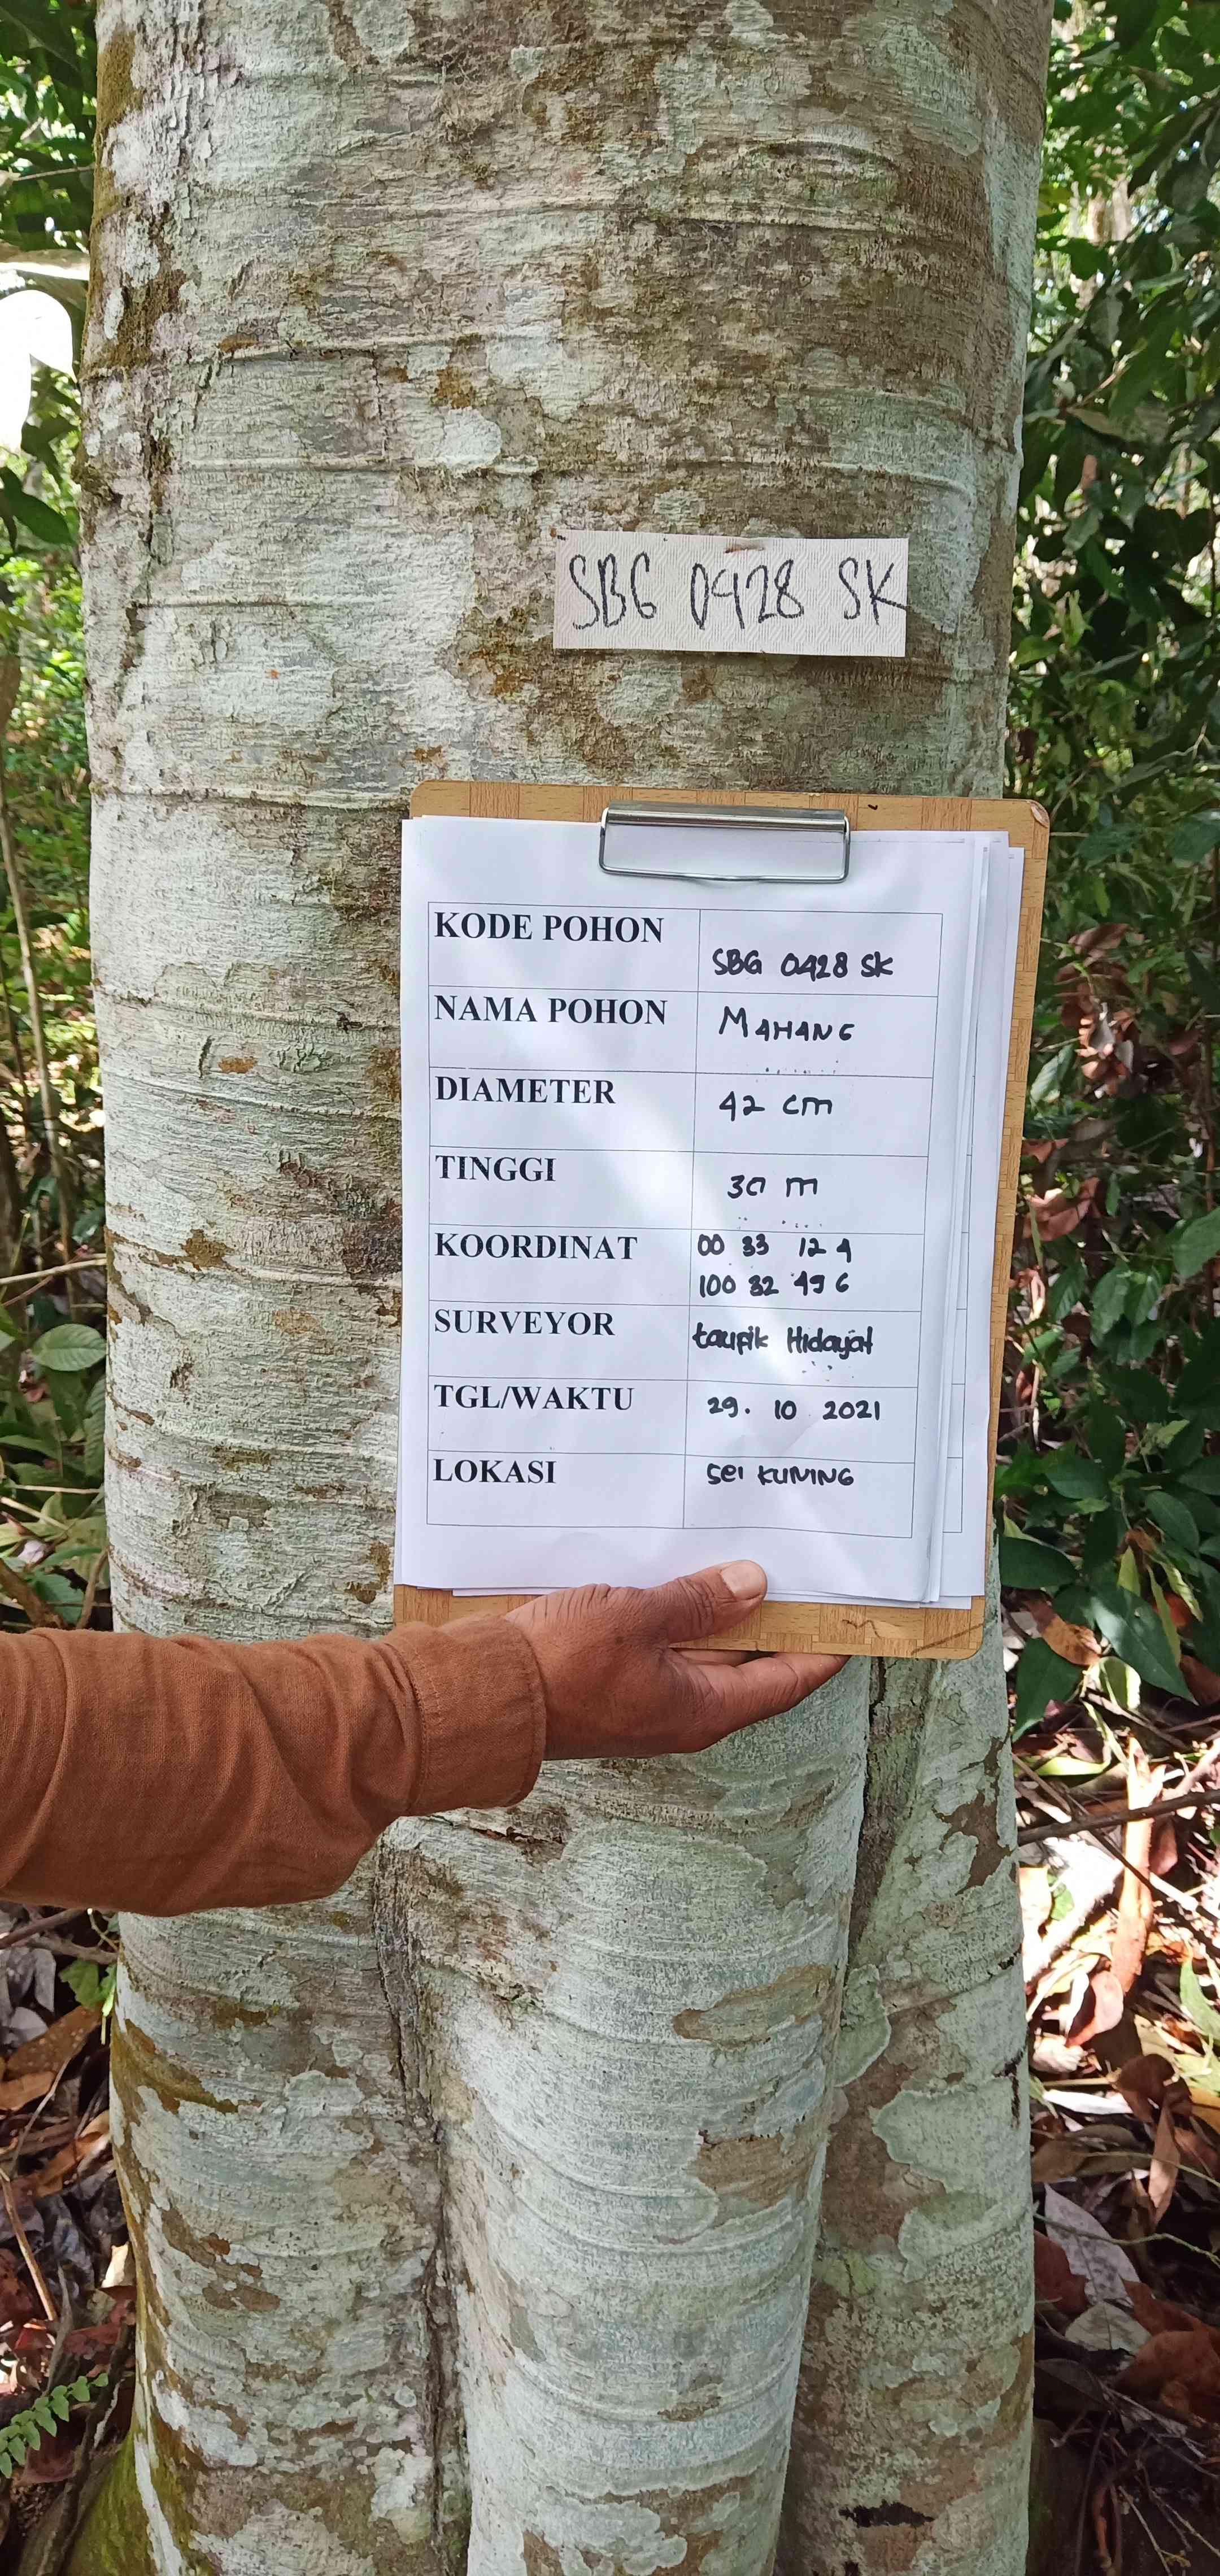 SBG 0428 SK
KODE POHON SBG 0428 SK
NAMA POHON MAHANG
DIAMETER 42 cm
TINGGI 30 m
KOORDINAT 00 33 12 4
100 32 49 6
SURVEYOR taufik Hidayat
TGL/WAKTU 29. 10 2021
LOKASI sei KUNING